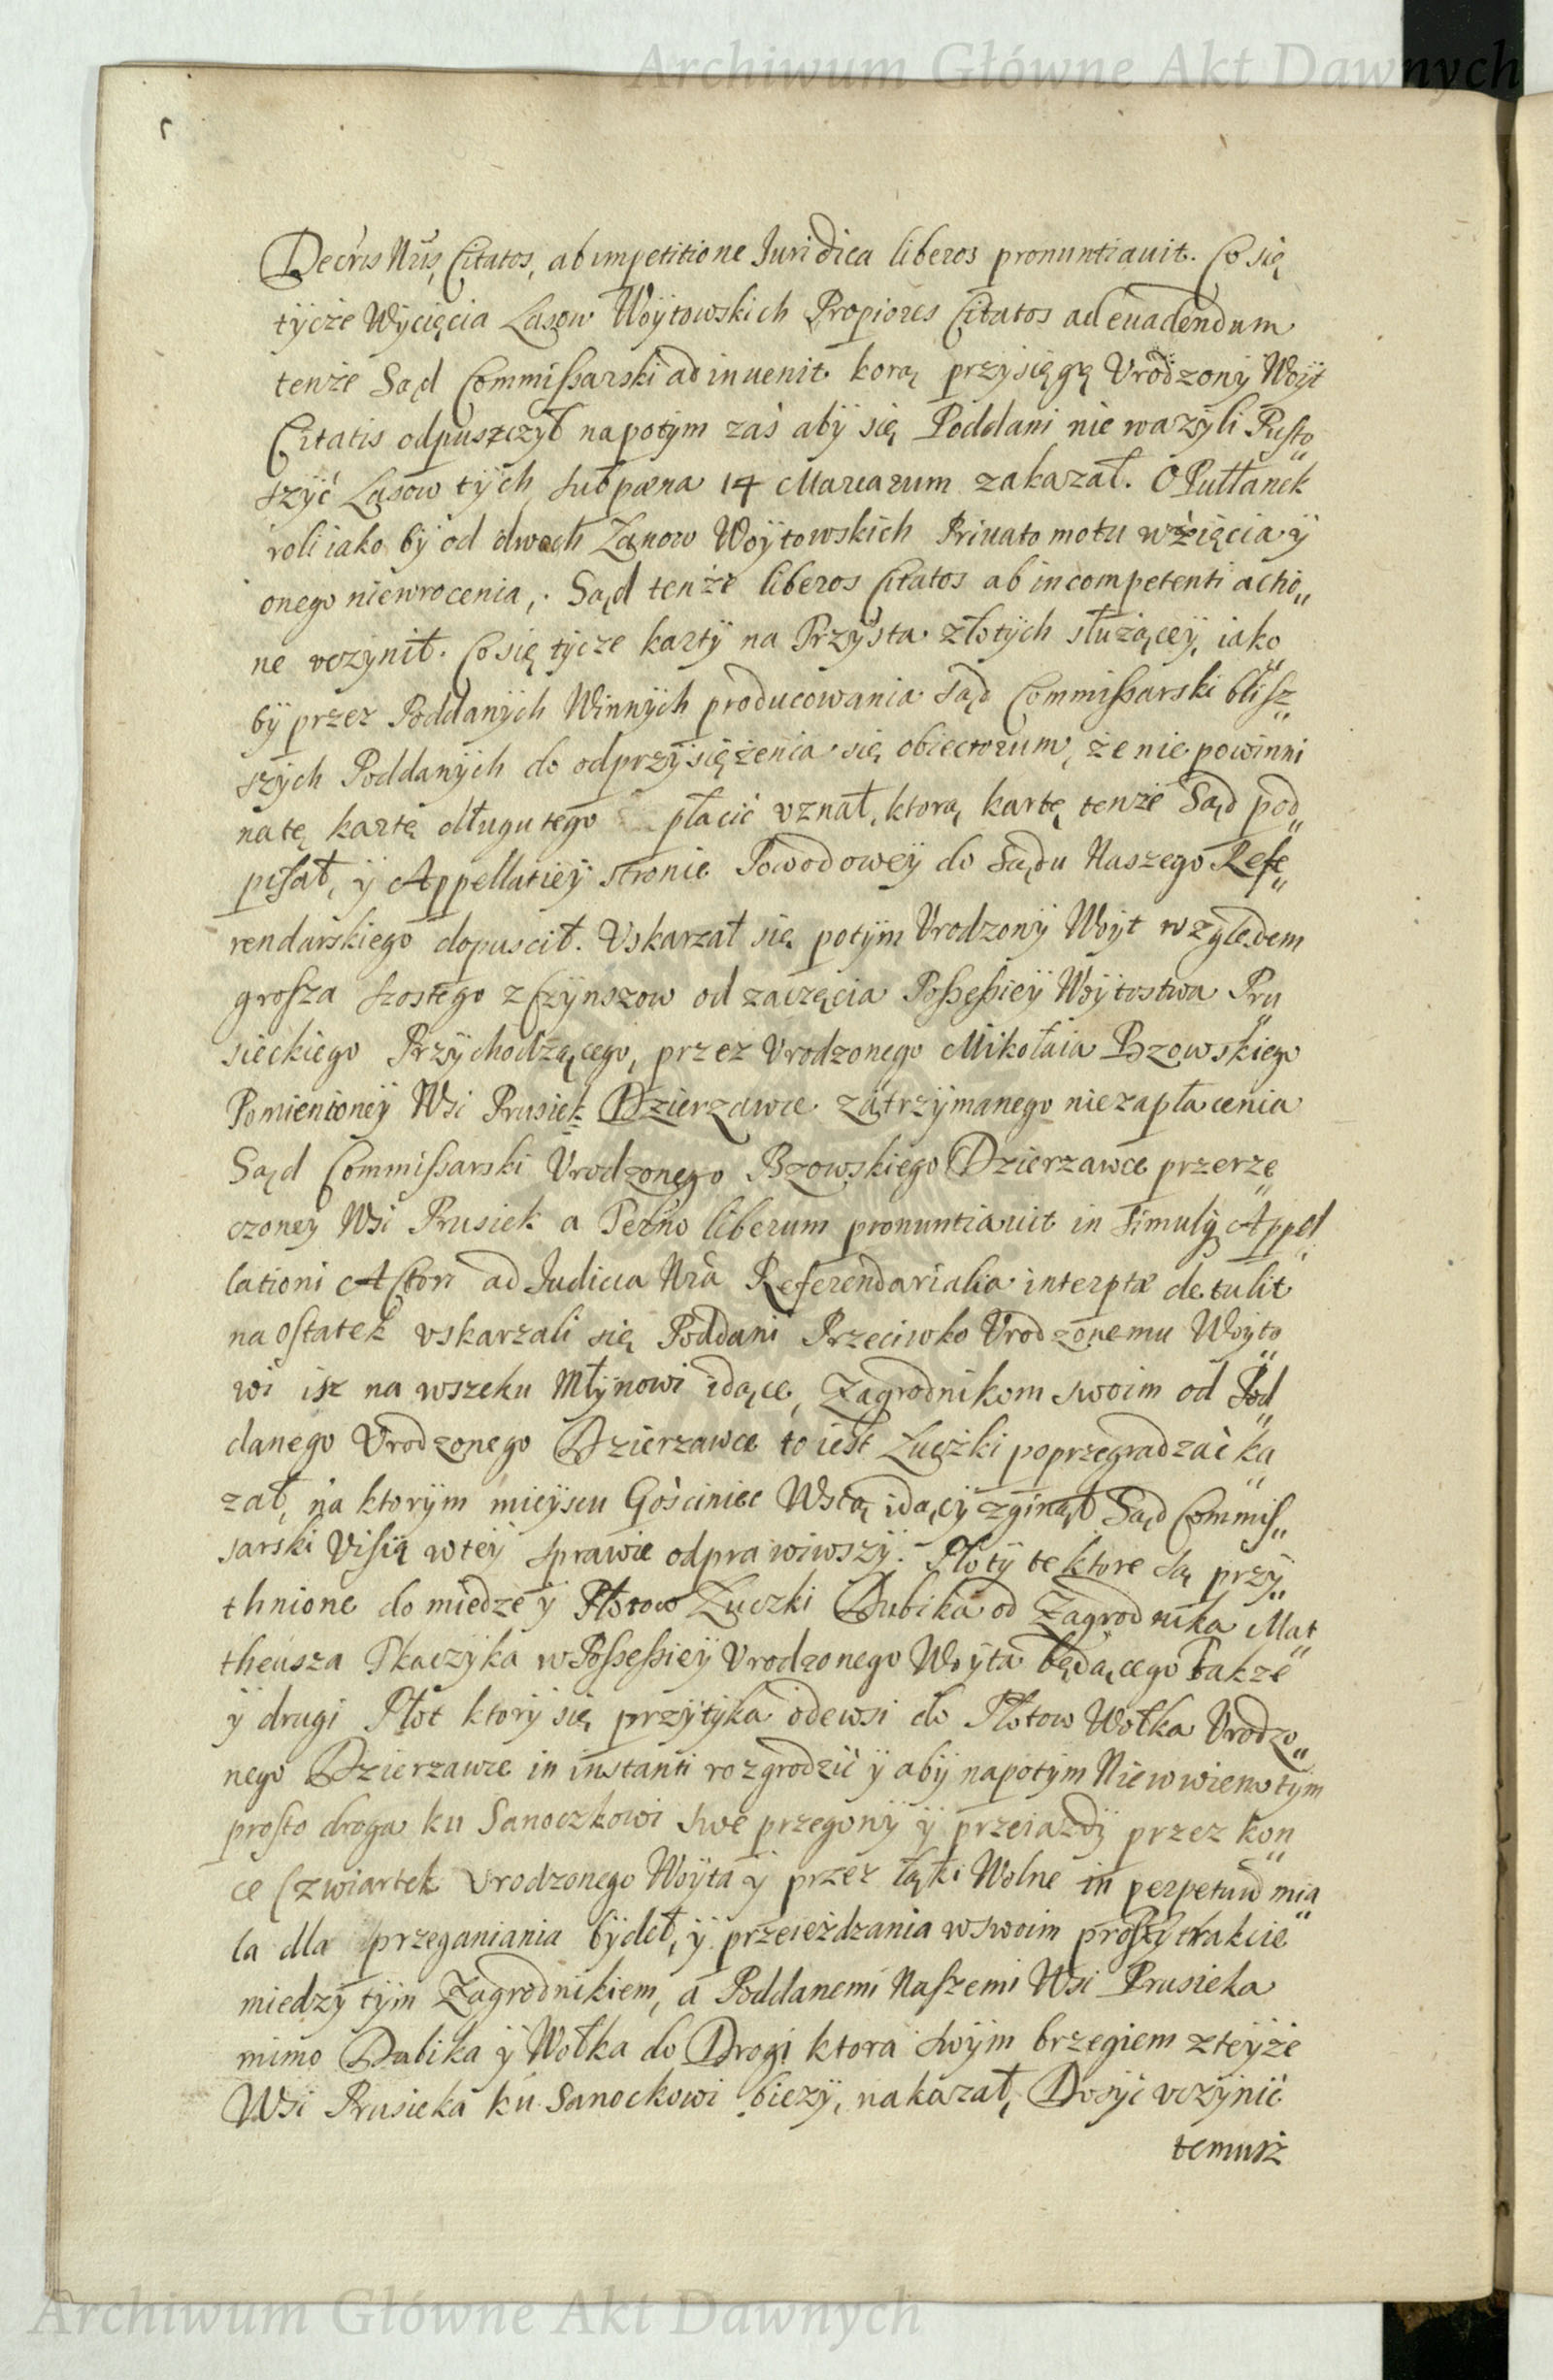 Archiwum Główne Akt Dawnych
Decris Nris, Citatos, ab impetitione Juridica liberos pronuntiavit. Co się
tycze Wycięcia Lasow Woytowskich Propiores Citatos ad evadendum
tenże Sąd Commissarski adinuenit korą przysięgę Vrodzony Woyt
Citatis odpuszczył napotym zaś aby się Poddani nie ważyli Pusto„
szyć Lasow tych sub pæna 14 Marcarum zakazał. O Pułłanek
roli iako by od dwoch Łanow Woytowskich Priuato motu wzięcia y
onego niewrocenia, Sąd tenże liberos Citatos ab incompetenti actio„
ne vczynił. Co się tycze karty na Przysta złotych służącey, iako„
by przez Poddanych Winnych producowania Sąd Commissarski blisz„
szych Poddanych do odprzysiężenia się obiectorum, że nie powinni
na tę kartę długu tego płacić vznał, ktorą kartę tenże Sąd pod„
pisał, y Appellatiey stronie Powodowey do Sądu Naszego Refe„
rendarskiego dopuscił. Vskarzał się potym Vrodzony Woyt względem
grosza szostego z Czynszow od zaczęcia Possessiey Woytostwa Pru„
sieckiego Przychodzącego, przez Vrodzonego Mikołaia Bzowskiego
Pomienioney Wsi Prusiek Dzierzawce zatrzymanego niezapłacenia
Sąd Commissarski Vrodzonego Bzowskiego Dzierzawce przerze„
czoney Wsi Prusiek a Termino liberum pronuntiauit in simuly Appel„
lationi Actori ad Judicia Nra Referendarialia interptæ detulit
na ostatek vskarzali się Poddani Przeciwko Vrodzonemu Woyto„
wi isz na wszeku Młynowi idące, Zagrodnikom swoim od Pod„
danego Vrodzonego Dzierzawce to iest Łuczki poprzegradzać ka„
zał, na ktorym mieyscu Gościniec Wstą idący zginął Sąd Commis„
sarski Visią w tey sprawie odprawiwszy. Płoty te ktore są przy„
tknione do miedze y Płotow Łuczki Dubika od Zagrodnika Mat„
theusza Tkaczyka w Possessiey Vrodzonego Woyta będącego Takze
y drugi Płot ktory się przytyka odewsi do Płotow Wołka Vrodzo„
nego Dzierzawce in instanti rozgrodzić y aby napotym Niewwiem tym
prosto droga ku Sanoczkowi swe przegony y przeiazdy przez kon„
ce Czwiartek Vrodzonego Woyta y przez łąki Wolne in perpetuum mia„
la dla przeganiania bydeł, y przeieżdzania w swoim prosty trakcie
miedzy tym Zagrodnikiem, a Poddanemi Naszemi Wsi Prusieka
mimo Dubika y Wołka do Drogi ktora swym brzegiem z teyże
Wsi Prusieka ku Sanockowi bieży, nakazał, Dosyć vczynić
temusz
Archiwum Główne Akt Dawnych